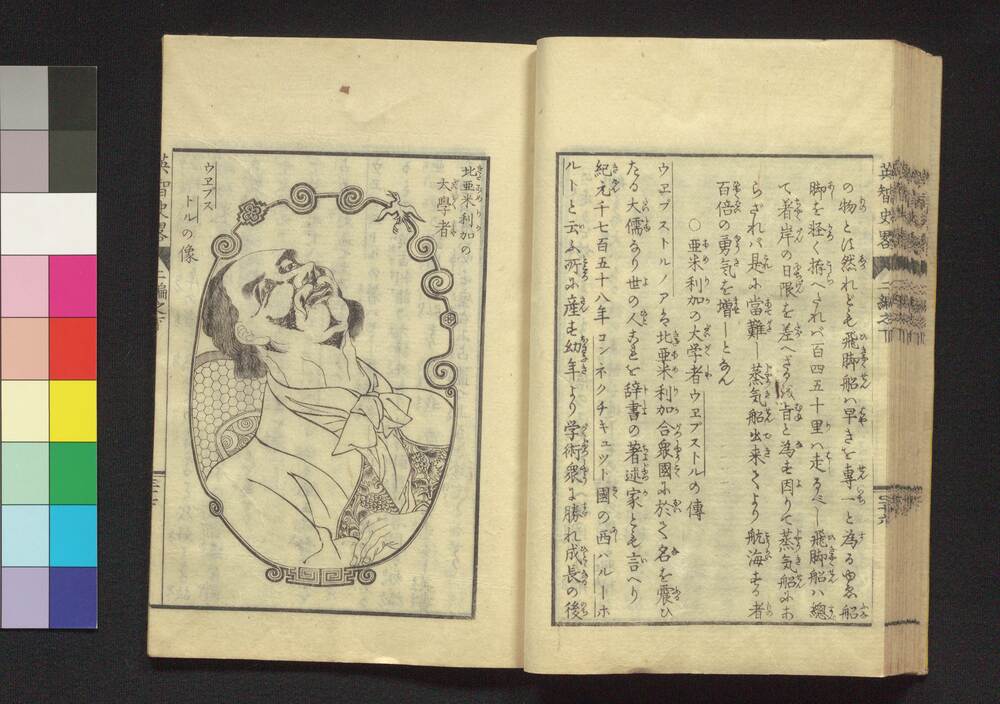 の物とは然れども飛脚船ハ早きを專一と為る由ゑ船
脚を軽く拵へたれバ百四五十里ハ走るべし飛脚船ハ總
て著岸の日限を差へざる
らざれバ是に當難し蒸気船出来てより航海する者
百倍の勇気を増しとなん
○亜米利加の大学者ウヱブストルの傳
ウヱブストルノアハ北亜米利加合衆國に於て名を震ひ
たる大儒なり世の人これを辞書の著述家とも言へり
紀元千七百五十八年コンネクチキュット國の西ハルーホ
ルトと云ふ所に産す幼年より学術衆に勝れ成長の後
北亜米利加の
大學者
ウヱブス
トルの像
英智史畧
二編之下